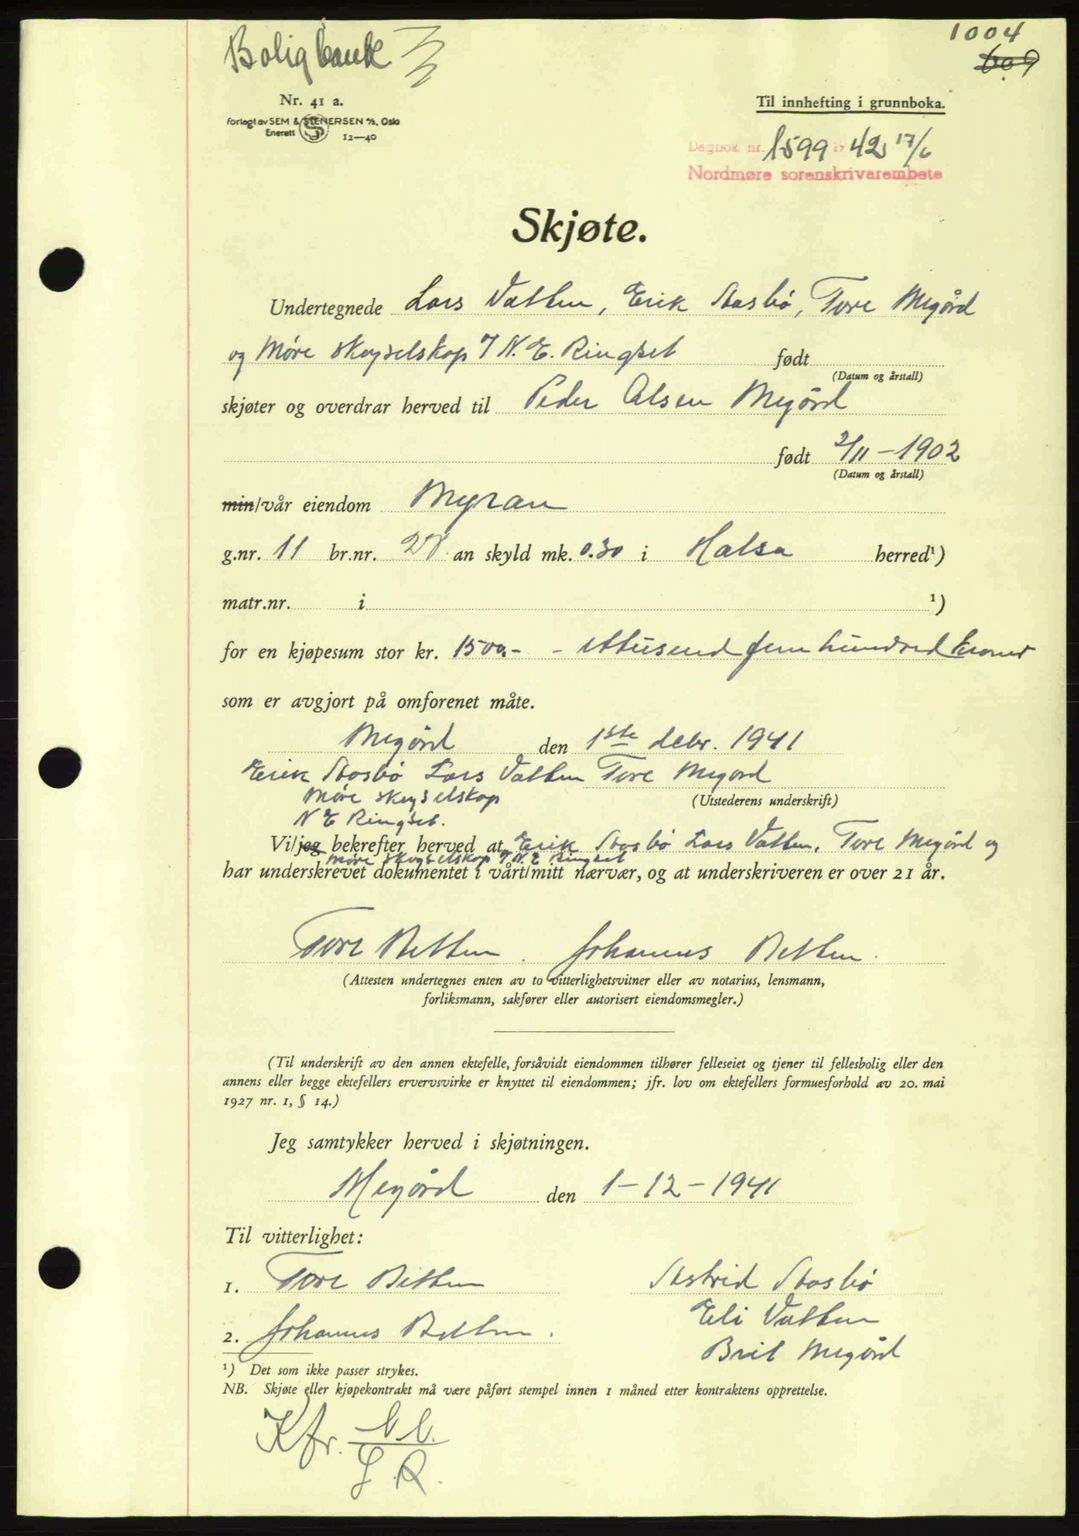 1004
Boligbank
609
Nr. 41 a.
Til innhefting i grunnboka.
Forlagt av SEM & STENERSEN A/S, Oslo
Enerett 12—40
Dagbok nr. 1599 1942 17/6
Nordmøre sorenskrivarembete
Skjøte.
Undertegnede Lars Vatten, Erik Stasbø, Tore Megård
og Møre skogselskap v N. E. Ringset født
(Datum og årstall)
skjøter og overdrar herved til Peder Olsen Megård
født 2/11 - 1902
(Datum og årstall)
min/vår eiendom Myran
g.nr. 11 br.nr. an skyld mk. 0.30 i Halsa herred¹)
matr.nr. i ¹)
for en kjøpesum stor kr. 1500,- - ettusend fem hundred kroner
som er avgjort på omforenet måte.
Megård den 1ste debr. 1941
Erik Stasbø Lars Vatten Tore Megård
Møre skogselskap (Utstederens underskrift)
N E Ringset.
Vi/jeg bekrefter herved at Erik Stasbø Lars Vatten, Tore Megård og
Møre skogselskap v N. E Ringset
har underskrevet dokumentet i vårt/mitt nærvær, og at underskriveren er over 21 år.
Tore Betten. Johannes Betten.
(Attesten undertegnes enten av to vitterlighetsvitner eller av notarius, lensmann,
forliksmann, sakfører eller autorisert eiendomsmegler.)
(Til underskrift av den annen ektefelle, forsåvidt eiendommen tilhører felleseiet og tjener til fellesbolig eller den
annens eller begge ektefellers ervervsvirke er knyttet til eiendommen; jfr. lov om ektefellers formuesforhold av 20. mai
1927 nr. 1, § 14.)
Jeg samtykker herved i skjøtningen.
Megård den 1 - 12 - 1941
Til vitterlighet:
1. Tore Betten Astrid Stasbø
Eli Vatten
2. Johannes Betten.
Brit Megård
¹) Det som ikke passer strykes.
NB. Skjøte eller kjøpekontrakt må være påført stempel innen 1 måned etter kontraktens opprettelse.
Kfr.